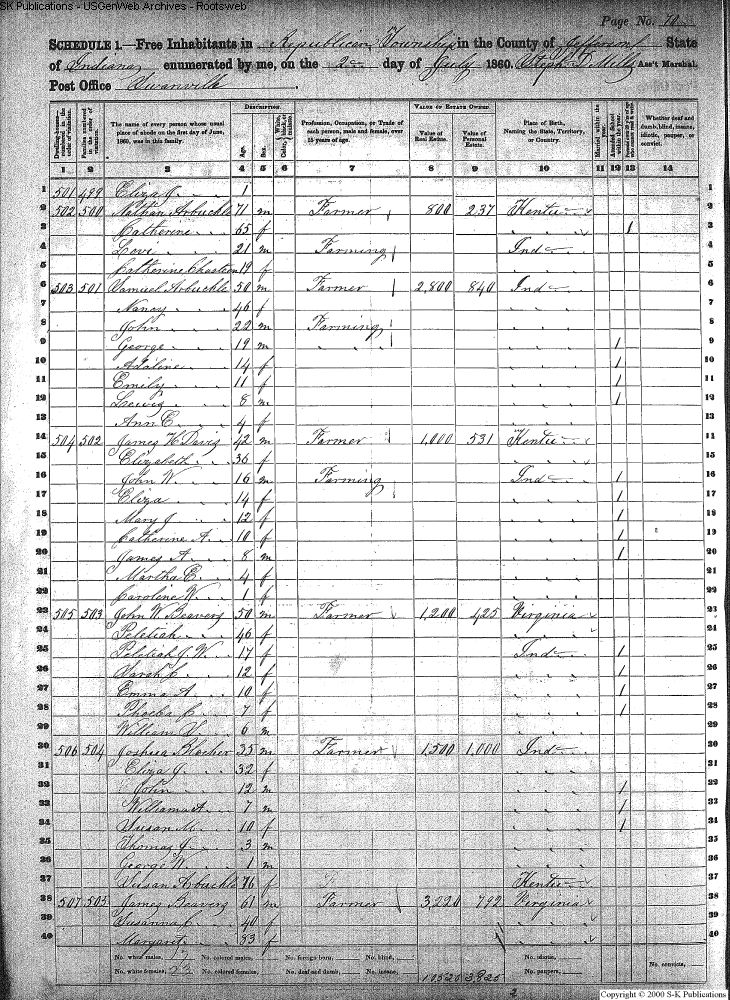 SK Publications - USGenWeb Archives - Rootsweb
Page No. 70
SCHEDULE 1.—Free Inhabitants in Republican Township in the County of Jefferson State
of Indiana enumerated by me, on the 2d day of July 1860. Steph. D. Mills Ass't Marshal.
Post Office Swanville
DESCRIPTION. VALUE OF ESTATE OWNED.
The name of every person whose usual place of abode on the first day of June, 1860, was in this family. Age. Sex. Profession, Occupation, or Trade of each person, male and female, over 15 years of age. Value of Real Estate. Value of Personal Estate. Place of Birth, Naming the State, Territory, or Country. Married within the year. Attended School within the year. Whether deaf and dumb, blind, insane, idiotic, pauper, or convict.
1 2 3 4 5 6 7 8 9 10 11 12 13 14
1 501 499 Eliza J. 1 1
2 502 500 Nathan Arbuckle 71 m Farmer 800 237 Kentu 2
3 Catherine 65 f " " / 3
4 Levi 21 m Farming Ind 4
5 Catherine Chasteen 19 f " " 5
6 503 501 Samuel Arbuckle 50 m Farmer 2,800 840 Ind 6
7 Nancy 46 f " " 7
8 John 22 m Farming " " 8
9 George 19 m " " " " / 9
10 Adaline 14 f " " / 10
11 Emily 11 f " " / 11
12 Lewis 8 m " " / 12
13 Ann E. 4 f " " 13
14 504 502 James H Davis 42 m Farmer 1,000 531 Kentu
15 Elizabeth 36 f " " 15
16 John W. 16 m Farming Ind / 16
17 Eliza 14 f " " / 17
18 Mary J. 12 f " " / 18
19 Catherine A. 10 f " " / 19
20 James A. 8 m " " / 20
21 Martha E. 4 f " " 21
22 Caroline W. 1 f " " 22
505 503 John W. Beavers 50 m Farmer 1,200 425 Virginia 23
24 Peletiah 46 f " " 24
25 Peletiah J. W. 17 f Ind / 25
26 Sarah C. 12 f " " / 26
27 Emma A. 10 f " " / 27
28 Phoeba C. 7 f " " / 28
29 William 6 m " " 29
30 506 504 Joshua Blocher 35 m Farmer 1,500 1,000 Ind 30
31 Eliza J. 32 f " " 31
John 12 m " " /
William A. 7 m " " / 33
34 Susan M. 10 f " " / 34
Thomas J. 3 m " " 35
George W. 1 m " "
37 Susan Arbuckle 76 f Kentu 37
38 507 505 James Beavers 61 m Farmer 3,220 792 Virginia 38
39 Susanna C. 40 f " " 39
40 Margaret 83 f " " 40
No. white males, 17 No. colored males, No. foreign born, No. blind, No. idiotic, No. convicts,
No. white females, 23 No. colored females, No. deaf and dumb, No. insane, 10520 3825 No. paupers,
2
Copyright © 2000 S-K Publications